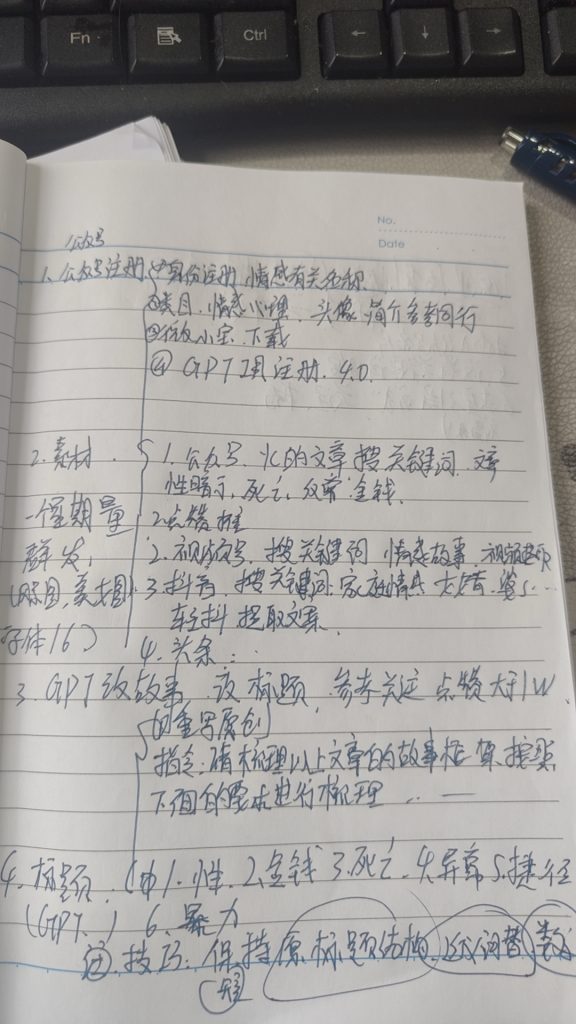 Fn
Ctrl
←
↓
→
No.
Date
公众号
1. 公众号注册 ①身份注册 情感有关名称
②类目. 情感心理. 头像 简介参考同行
③ 小宝 下载
④ GPT 注册. 4.0.
2. 素材. 1. 公众号. 火的文章 搜关键词
性暗示, 死亡, 金钱.
一个星期量 2点赞推
群发, 2. 视频号. 搜关键词 情感故事.
3. 抖音. 搜关键词. 家庭情感
字体16) 轻抖 提取文案.
4. 头条...
3. GPT改故事 改标题, 参考关注 点赞大于1W
的重写原创
指令: 请梳理以上文章的故事框架. 按照
下面的要求进行梳理 .. —
4. 标题. 1. 性. 2.金钱 3.死亡. 4.异常 5.捷径
(GPT.) 6. 暴力
技巧: 保持原标题结构